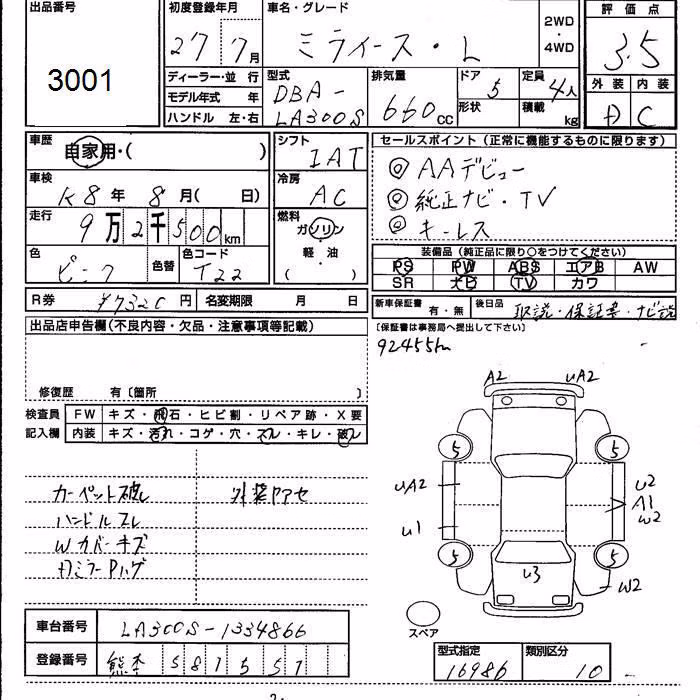 出品番号
3001
初度登録年月
27 7月
車名・グレード
ミライース・L
2WD
・
4WD
評価点
3.5
外装 内装
D C
ディーラー・並 行
モデル年式 年
ハンドル 左・右
型式
DBA-
LA300S
排気量
660cc
ドア 5
形状
定員 4人
積載 kg
車歴
自家用・( )
車検
R8年 8月( 日)
走行
9万2千500km
色
ピンク
色替
色コード
T22
シフト
IAT
冷房
AC
燃料
ガソリン
・
軽・油
( )
セールスポイント(正常に機能するものに限ります)
◎AAデビュー
◎純正ナビ・TV
◎キーレス
装備品(純正品に限り○をつけてください)
PS PW ABS エアB AW
SR ナビ TV カワ
R券 ¥7320円
名変期限 月 日
新車保証書 有・無
後日品 取説・保証書・ナビ説
(保証書は事務局へ提出して下さい)
92455km
出品店申告欄(不良内容・欠品・注意事項等記載)
修復歴 有〔箇所 〕
検査員
記入欄
FW キズ・飛石・ヒビ割・リペア跡・X要
内装 キズ・汚れ・コゲ・穴・スレ・キレ・破レ
カーペット破レ
ハンドルスレ
Wカバーキズ
DミラーPハゲ
外装ヤアセ
A2 UA2
5 5
UA2 U2
A1
U1 W2
5 5
U3
W2
スペア
車台番号 LA300S-1334866
登録番号 熊本 581 5 57
型式指定
16986
類別区分
10